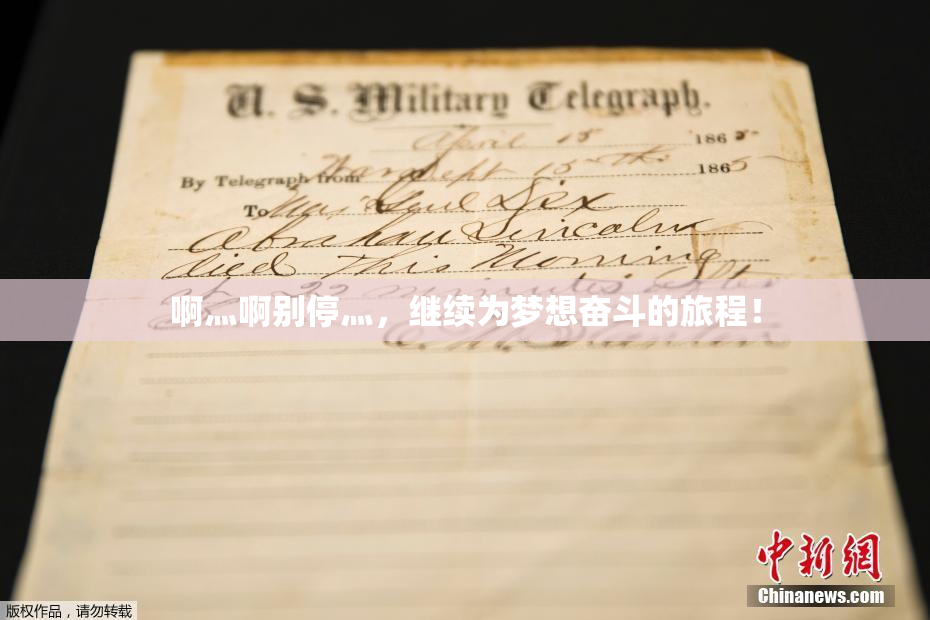 U. S. Military Telegraph.
April 15 1865
By Telegraph from War Dept 15th 1865
To Maj Genl Dix
Abraham Lincoln
died This Morning
at 22 minutes after
啊灬啊别停灬，继续为梦想奋斗的旅程！
E. M. Stanton
中新网
Chinanews.com
版权作品，请勿转载